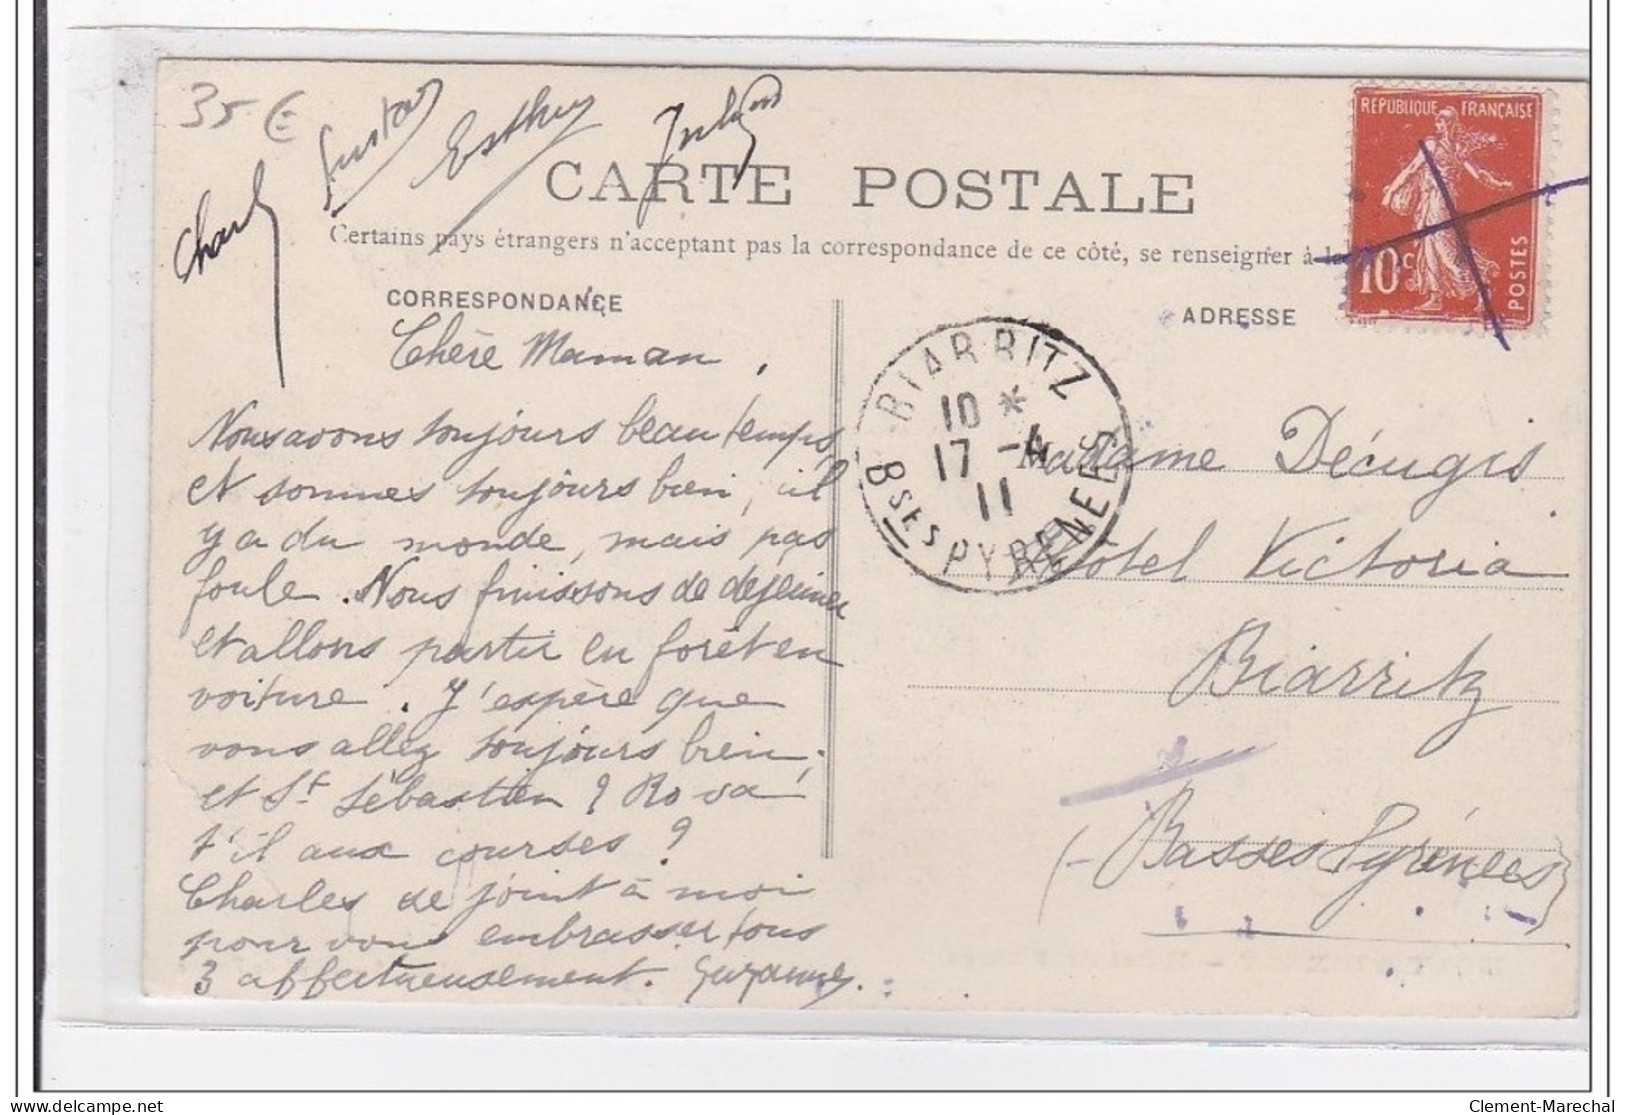 35 €
Charles
Gustav
Esther
CARTE POSTALE
Certains pays étrangers n'acceptant pas la correspondance de ce côté, se renseigner à la
RÉPUBLIQUE FRANÇAISE
10c
POSTES
CORRESPONDANCE
ADRESSE
BIARRITZ
10 *
17 - 4
11
BSES PYRENEES
Chère Maman,
Nous avons toujours beau temps,
et sommes toujours bien, il
y a du monde, mais pas
foule. Nous finissons de dejeuner
et allons partir en forêt en
voiture. J'espère que
vous allez toujours bien,
et St Sébastien ? Ro va
t'il aux courses ?
Charles se joint à moi
pour vous embrasser tous
3 affectueusement. Suzanne.
Madame Décugis
Hôtel Victoria
Biarritz
(- Basses Pyrénées)
delcampe.net
Clement-Marechal